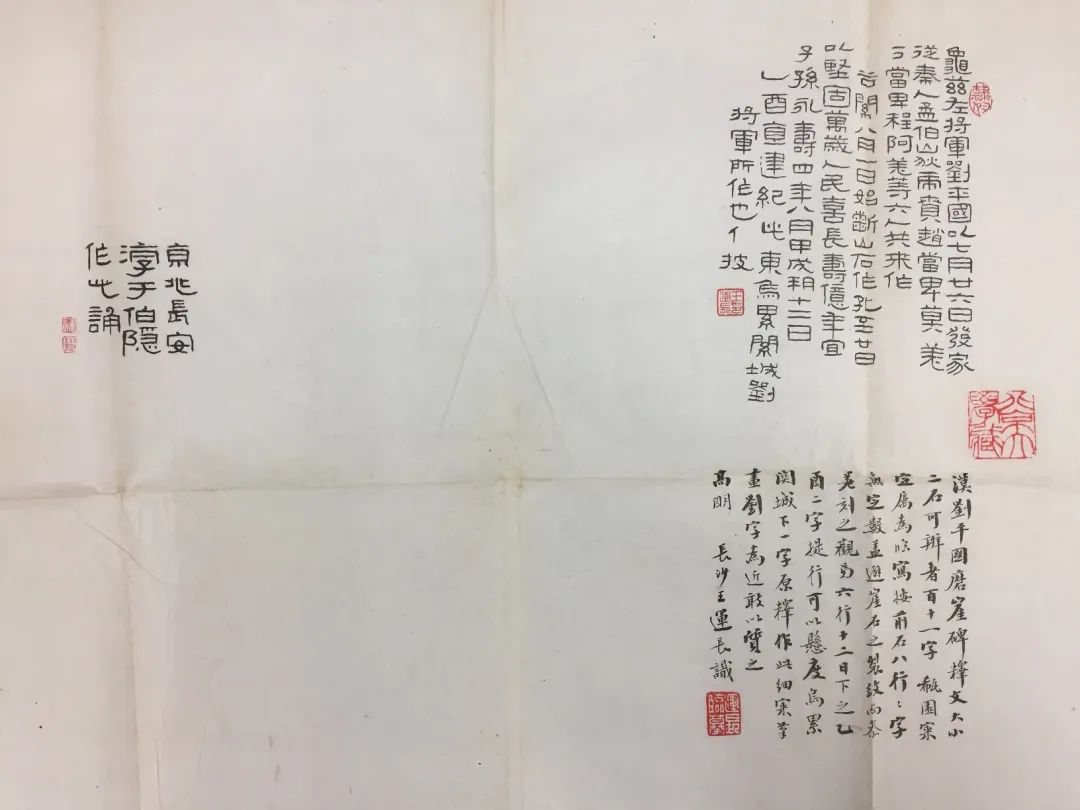 龜茲左將軍劉平國以七月廿六日發家
從秦人孟伯山狄虎賁趙當卑萬羌
當卑程阿羌等六人共來作
谷關八月一日始斷山石作孔至廿日
以堅固萬歲人民喜長壽億年宜
子孫永壽四年八月甲戌朔十二日
乙酉直建紀此東烏累關城劉
將軍所作也亻披
京兆長安
淳于伯隗
作此誦
漢劉平國磨崖碑釋文大小
二石可辨者百十一字 觚園
定屬為臨寫按前石八行行字
無定數蓋避崖石之裂故而參
差刻之觀第六行十二日下之乙
酉二字提行可以懸度烏累
関城下一字原釋作此細案筆
畫劉字為近敢以質之
高明 長沙王運長識